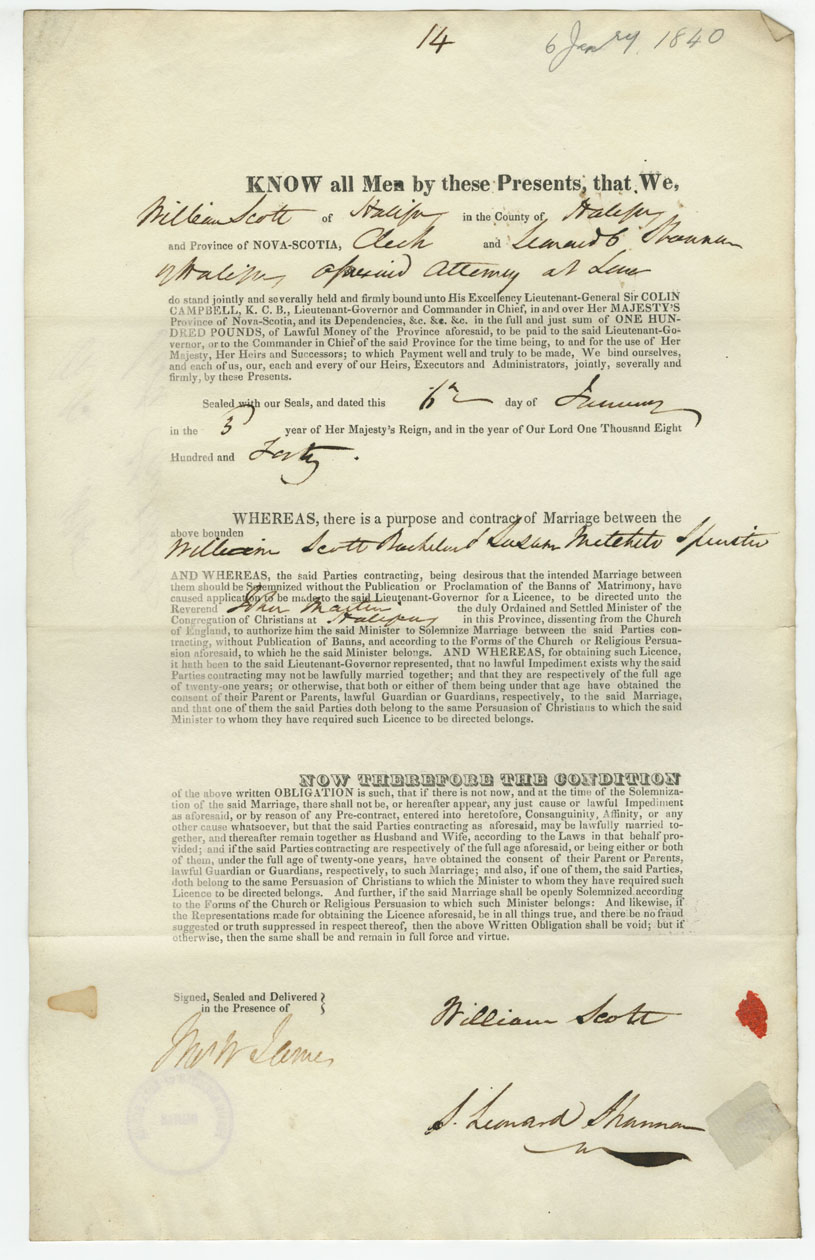 14
6 Jany 1840
KNOW all Men by these Presents, that We,
William Scott of Halifax in the County of Halifax
and Province of NOVA-SCOTIA, Clerk and Leonard Shannon
of Halifax aforesaid Attorney at Law
do stand jointly and severally held and firmly bound unto His Excellency Lieutenant-General Sir COLIN
CAMPBELL, K. C. B., Lieutenant-Governor and Commander in Chief, in and over Her MAJESTY'S
Province of Nova-Scotia, and its Dependencies, &c. &c. &c. in the full and just sum of ONE HUN-
DRED POUNDS, of Lawful Money of the Province aforesaid, to be paid to the said Lieutenant-Go-
vernor, or to the Commander in Chief of the said Province for the time being, to and for the use of Her
Majesty, Her Heirs and Successors; to which Payment well and truly to be made, We bind ourselves,
and each of us, our, each and every of our Heirs, Executors and Administrators, jointly, severally and
firmly, by these Presents.
Sealed with our Seals, and dated this 6th day of January
in the 3d year of Her Majesty's Reign, and in the year of Our Lord One Thousand Eight
Hundred and Forty.
WHEREAS, there is a purpose and contract of Marriage between the
above bounden
William Scott Bachelor & Susan Spinster
AND WHEREAS, the said Parties contracting, being desirous that the intended Marriage between
them should be Solemnized without the Publication or Proclamation of the Banns of Matrimony, have
caused application to be made to the said Lieutenant-Governor for a Licence, to be directed unto the
Reverend John Martin the duly Ordained and Settled Minister of the
Congregation of Christians at Halifax in this Province, dissenting from the Church
of England, to authorize him the said Minister to Solemnize Marriage between the said Parties con-
tracting, without Publication of Banns, and according to the Forms of the Church or Religious Persua-
sion aforesaid, to which he the said Minister belongs. AND WHEREAS, for obtaining such Licence,
it hath been to the said Lieutenant-Governor represented, that no lawful Impediment exists why the said
Parties contracting may not be lawfully married together; and that they are respectively of the full age
of twenty-one years; or otherwise, that both or either of them being under that age have obtained the
consent of their Parent or Parents, lawful Guardian or Guardians, respectively, to the said Marriage,
and that one of them the said Parties doth belong to the same Persuasion of Christians to which the said
Minister to whom they have required such Licence to be directed belongs.
NOW THEREFORE THE CONDITION
of the above written OBLIGATION is such, that if there is not now, and at the time of the Solemniza-
tion of the said Marriage, there shall not be, or hereafter appear, any just cause or lawful Impediment
as aforesaid, or by reason of any Pre-contract, entered into heretofore, Consanguinity, Affinity, or any
other cause whatsoever, but that the said Parties contracting as aforesaid, may be lawfully married to-
gether, and thereafter remain together as Husband and Wife, according to the Laws in that behalf pro-
vided; and if the said Parties contracting are respectively of the full age aforesaid, or being either or both
of them, under the full age of twenty-one years, have obtained the consent of their Parent or Parents,
lawful Guardian or Guardians, respectively, to such Marriage; and also, if one of them, the said Parties,
doth belong to the same Persuasion of Christians to which the Minister to whom they have required such
Licence to be directed belongs. And further, if the said Marriage shall be openly Solemnized according
to the Forms of the Church or Religious Persuasion to which such Minister belongs: And likewise, if
the Representations made for obtaining the Licence aforesaid, be in all things true, and there be no fraud
suggested or truth suppressed in respect thereof, then the above Written Obligation shall be void; but if
otherwise, then the same shall be and remain in full force and virtue.
Signed, Sealed and Delivered
in the Presence of
William Scott
Thos W James
S. Leonard Shannon